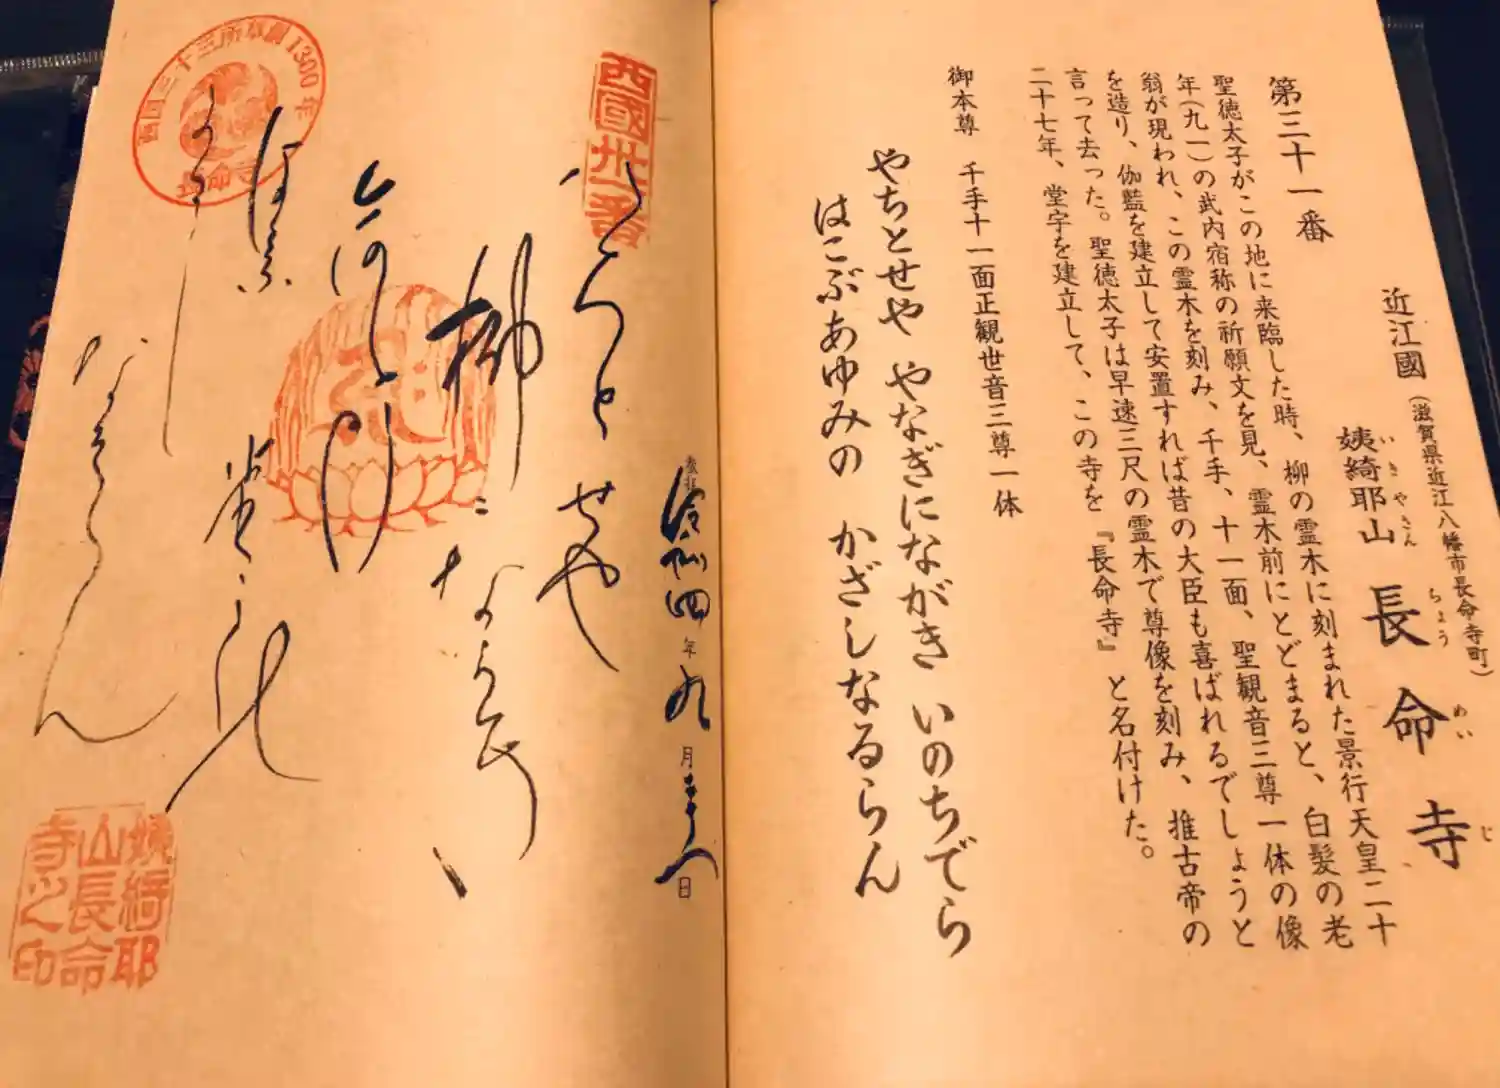 近江國(滋賀県近江八幡市長命寺町)
姨綺耶山 長命寺
いきやさん ちょうめいじ
第三十一番
聖徳太子がこの地に来臨した時、柳の霊木に刻まれた景行天皇二十
年(九一)の武内宿称の祈願文を見、霊木前にとどまると、白髪の老
翁が現われ、この霊木を刻み、千手、十一面、聖観音三尊一体の像
を造り、伽藍を建立して安置すれば昔の大臣も喜ばれるでしょうと
言って去った。聖徳太子は早速三尺の霊木で尊像を刻み、推古帝の
二十七年、堂宇を建立して、この寺を『長命寺』と名付けた。
御本尊 千手十一面正観世音三尊一体
やちとせや やなぎにながき いのちでら
はこぶあゆみの かざしなるらん
奉拝 令和四年九月 日
西國卅一番
柳になかき
西国三十三所草創1300年
長命寺
なるらん
姨綺耶
山長命
寺之印